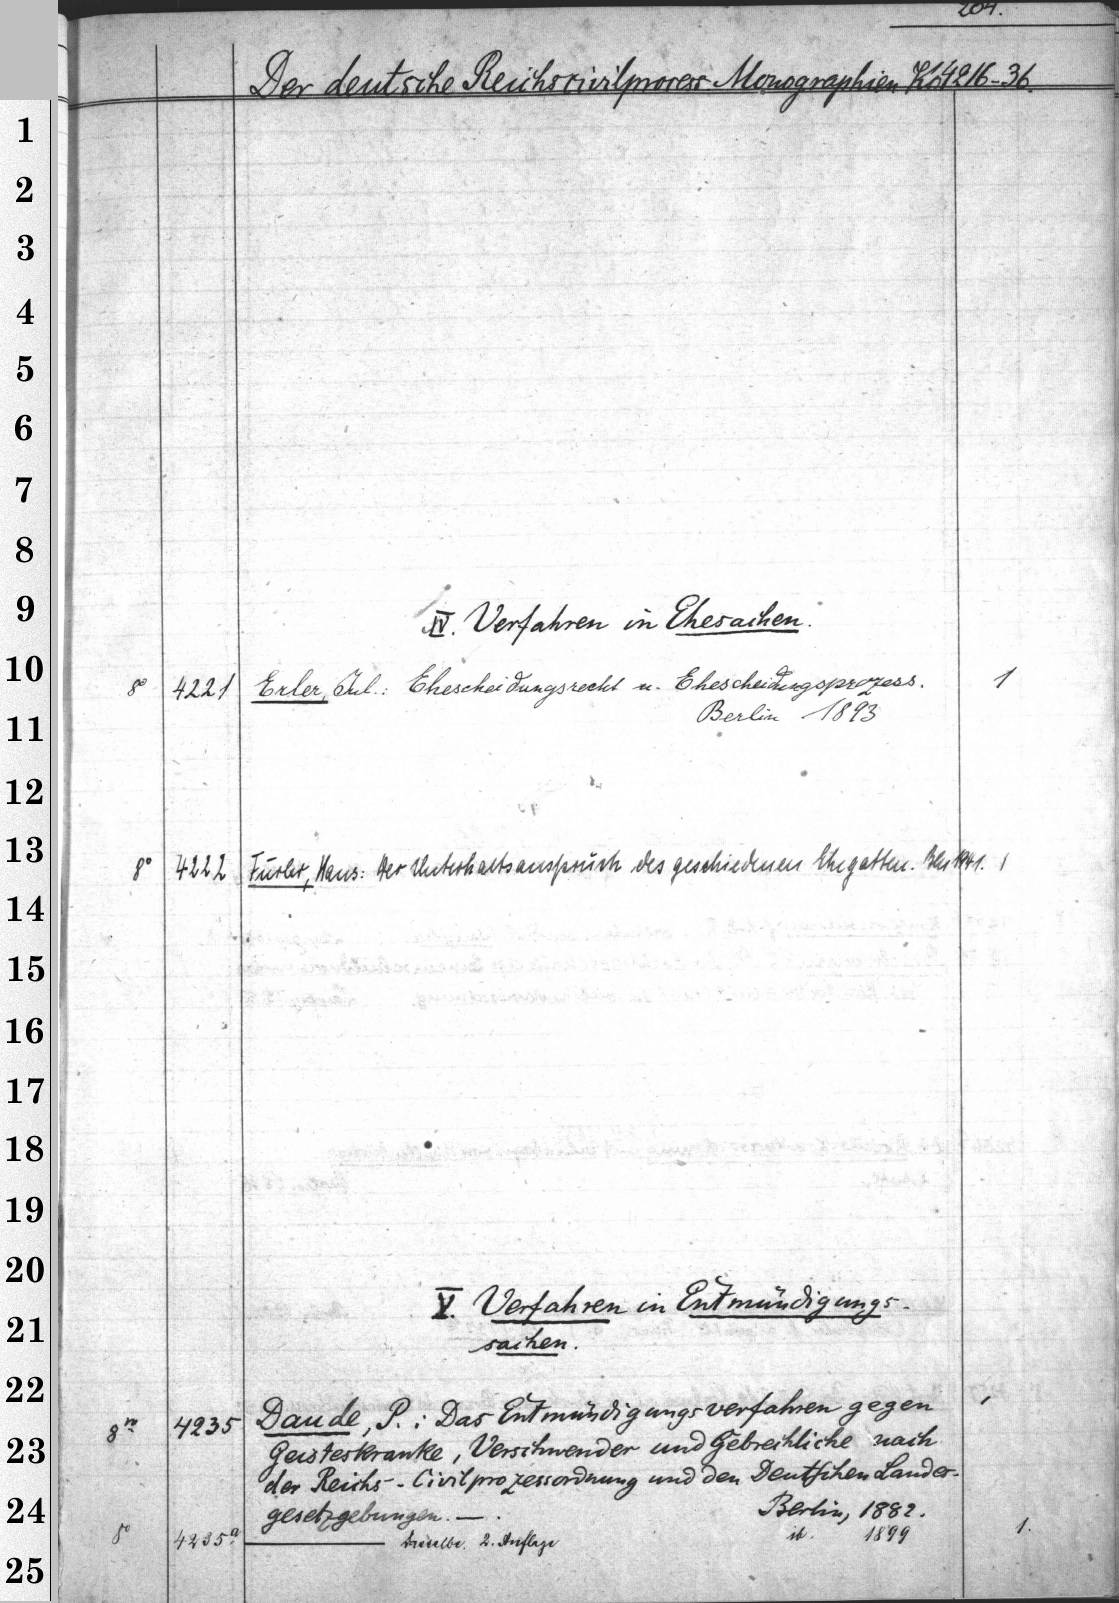 204.
Der deutsche Reichscivilprocess Monographien Kh4216-36.
1
2
3
4
5
6
7
8
9
IV. Verfahren in Ehesachen.
10
8° 4221 Erler, Jul.: Ehescheidungsrecht u. Ehescheidungsprozess. 1
Berlin 1893
11
12
13
8° 4222 Furler, Hans: Der Unterhaltsanspruch des geschiedenen Ehegatten. 1941. 1
14
15
16
17
18
19
20
V. Verfahren in Entmündigungs-
21
sachen.
22
8vo 4235 Daude, P.: Das Entmündigungsverfahren gegen
23
Geisteskranke, Verschwender und Gebrechliche nach
der Reichs-Civilprozessordnung und den Deutschen Landes-
24
gesetzgebungen. — . Berlin, 1882.
8° 4235a dieselbe. 2. Auflage ib. 1899 1.
25